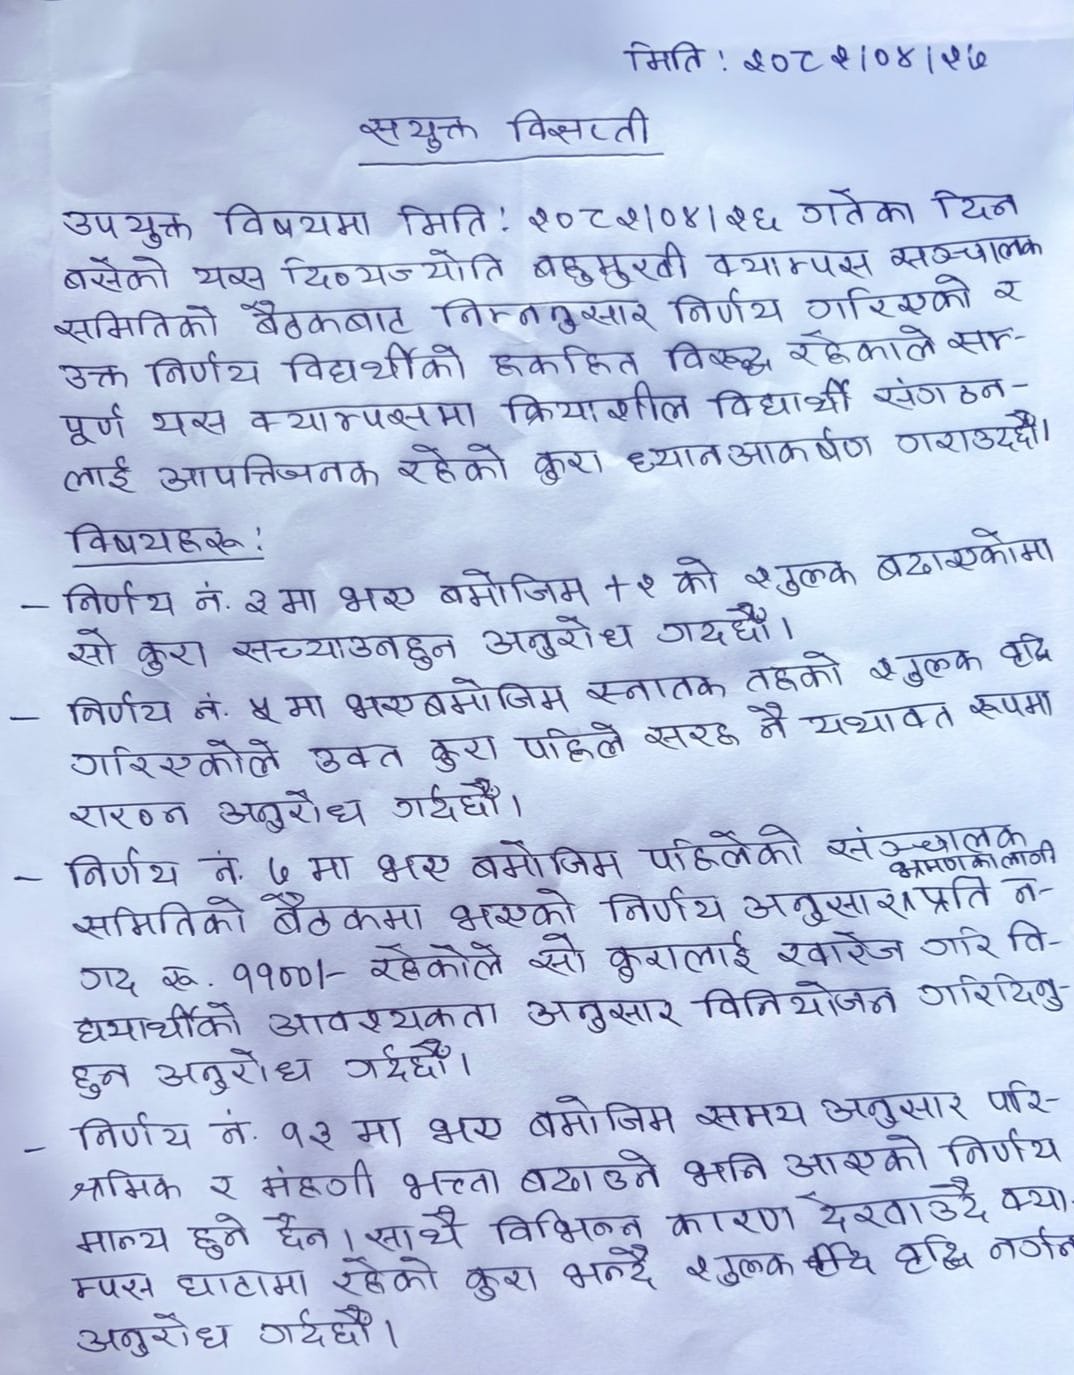 मिति : २०८२/०४/२७
सयुक्त विज्ञप्ती
उपयुक्त विषयमा मिति : २०८२/०४/२६ गतेका दिन
बसेको यस दिव्यज्योति बहुमुखी क्याम्पस सञ्चालक
समितिको बैठकबाट निम्नानुसार निर्णय गरिएको र
उक्त निर्णय विद्यर्थीको हकहित विरूद्ध रहेकाले सम-
पूर्ण यस क्याम्पसमा क्रियाशील विद्यार्थी संगठन-
लाई आपत्तिजनक रहेको कुरा ध्यानआकर्षण गराउदछौ।
विषयहरू :
- निर्णय नं. २ मा भए बमोजिम +२ को शुल्क बढाएकोमा
सो कुरा सच्याउनहुन अनुरोध गर्दछौं।
- निर्णय नं. ५ मा भएबमोजिम स्नातक तहको शुल्क वृद्धि
गरिएकोले उक्त कुरा पहिले सरह नै यथावत रूपमा
राख्न अनुरोध गर्दछौं।
- निर्णय नं. ७ मा भए बमोजिम पहिलेको संञ्चालक
भ्रमणकालागी
समितिको बैठकमा भएको निर्णय अनुसार प्रति न-
गद रू. ११००/- रहेकोले सो कुरालाई खारेज गरि वि-
द्ययार्थीको आवश्यकता अनुसार विनियोजन गरिदिनु-
हुन अनुरोध गर्दछौं।
- निर्णय नं. १३ मा भए बमोजिम समय अनुसार परि-
श्रमिक र मंहगी भत्ता बढाउने भनि आएको निर्णय
मान्य हुने छैन। साथै विभिन्न कारण देखाउदै क्या-
म्पस घाटामा रहेको कुरा भन्दै शुल्क वृद्धि नगर्न
अनुरोध गर्दछौं।